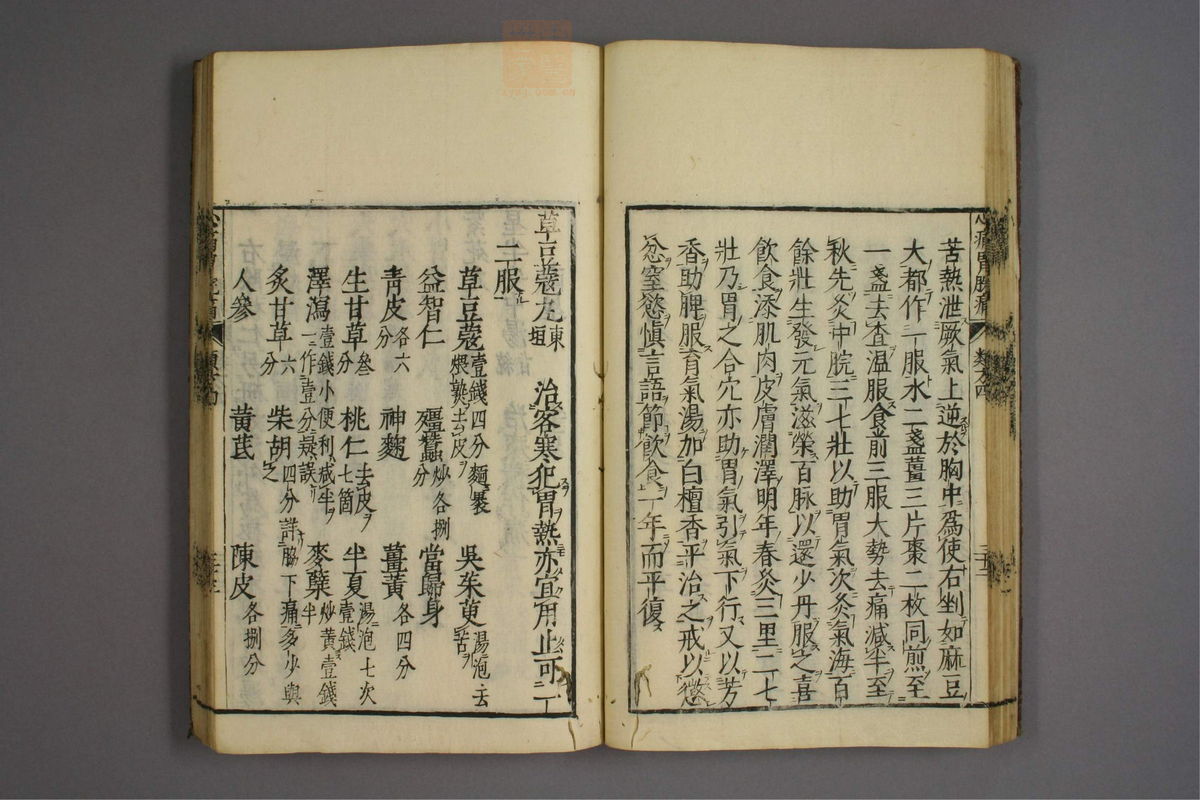 苦熱泄厥氣上逆於胸中爲使右剉如麻豆
大都作一服水二盞薑三片棗二枚同煎至
一盞去査溫服食前三服大勢去痛減半至
秋先灸中脘三七壯以助胃氣次灸氣海百
餘壯生發元氣滋榮百脉以還少丹服之喜
飲食添肌肉皮膚潤澤明年春灸三里二七
壯乃胃之合穴亦助胃氣引氣下行又以芳
香助脾服育氣湯加白檀香平治之戒以懲
忿窒慾愼言語節飲食一年而平復
草豆蔻丸東垣 治客寒犯胃熱亦宜用止可一
二服
草豆蔻壹錢四分麵裹煨熟去皮 吳茱萸湯泡去苦
益智仁 殭蠶炒各捌分 當歸身
靑皮各六分 神麯 薑黃各四分
生甘草叄分 桃仁去皮七箇 半夏湯泡七次壹錢
澤瀉壹錢小便利減半一作壹分疑誤 麥蘗炒黃壹錢半
炙甘草六分 柴胡四分詳脇下痛多少與之
人參 黃芪 陳皮各捌分